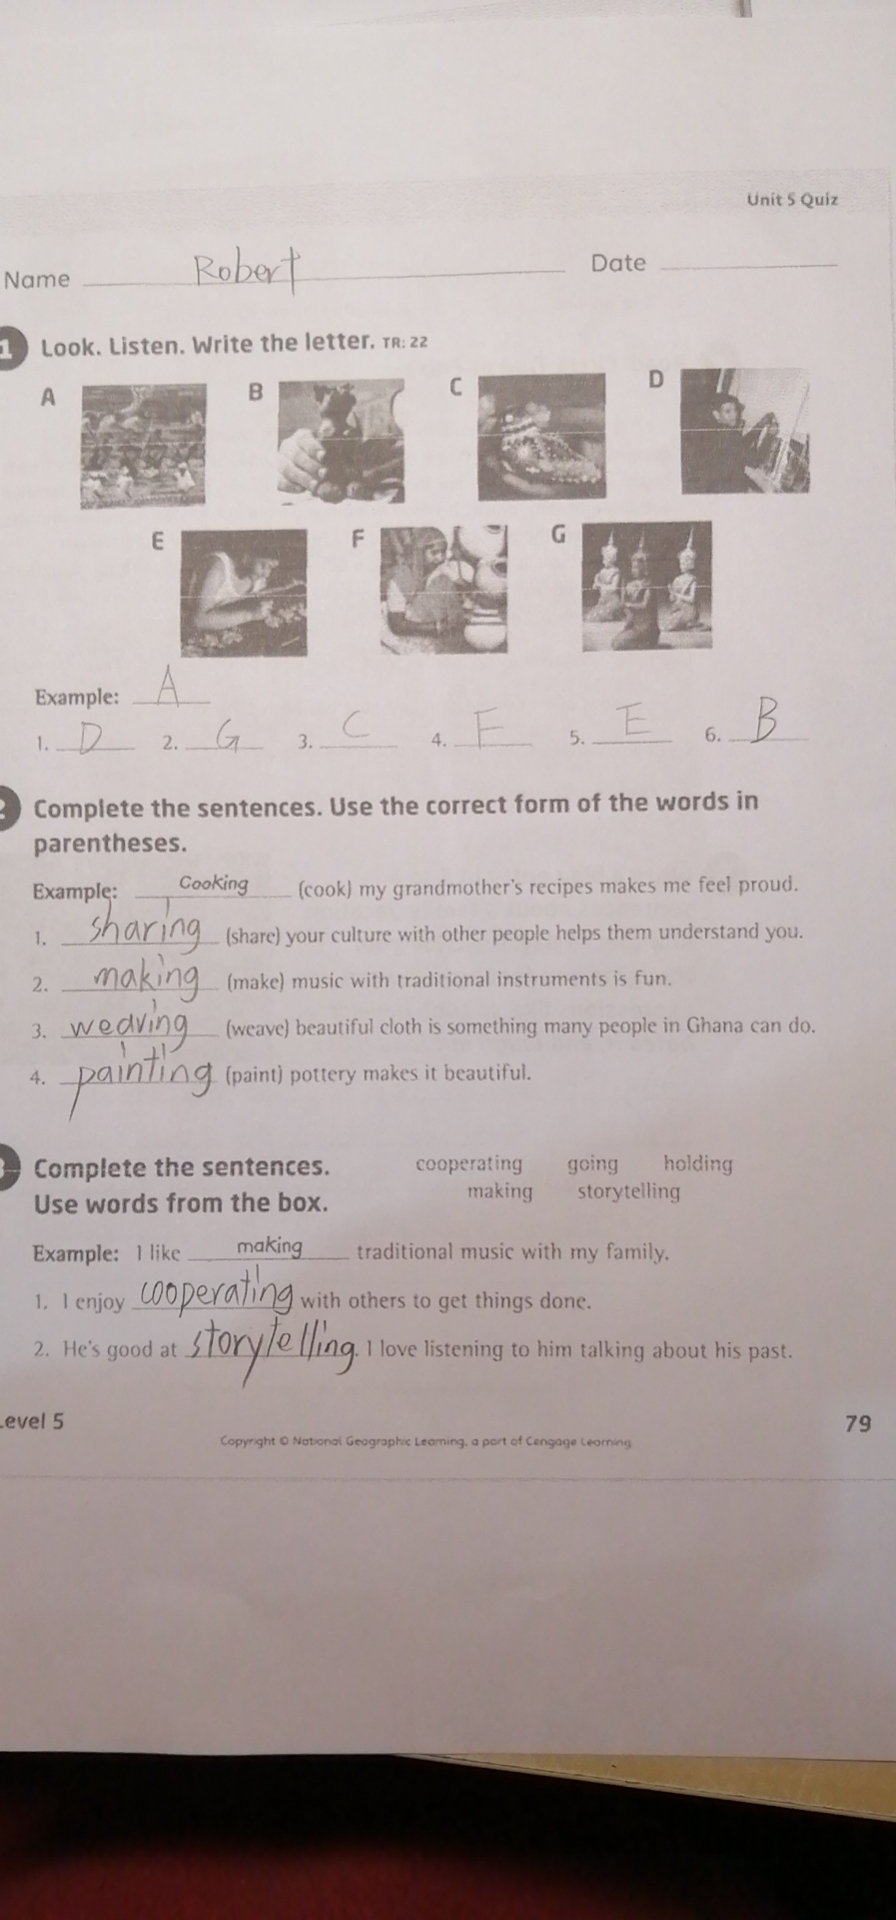 Unit 5 Quiz
Name Robert Date
1 Look. Listen. Write the letter. TR: 22
A B C D
E F G
Example: A
1. D 2. G 3. C 4. F 5. E 6. B
2 Complete the sentences. Use the correct form of the words in
parentheses.
Example: Cooking (cook) my grandmother's recipes makes me feel proud.
1. sharing (share) your culture with other people helps them understand you.
2. making (make) music with traditional instruments is fun.
3. weaving (weave) beautiful cloth is something many people in Ghana can do.
4. painting (paint) pottery makes it beautiful.
3 Complete the sentences. cooperating going holding
Use words from the box. making storytelling
Example: I like making traditional music with my family.
1. I enjoy cooperating with others to get things done.
2. He's good at storytelling. I love listening to him talking about his past.
Level 5 79
Copyright © National Geographic Learning, a part of Cengage Learning